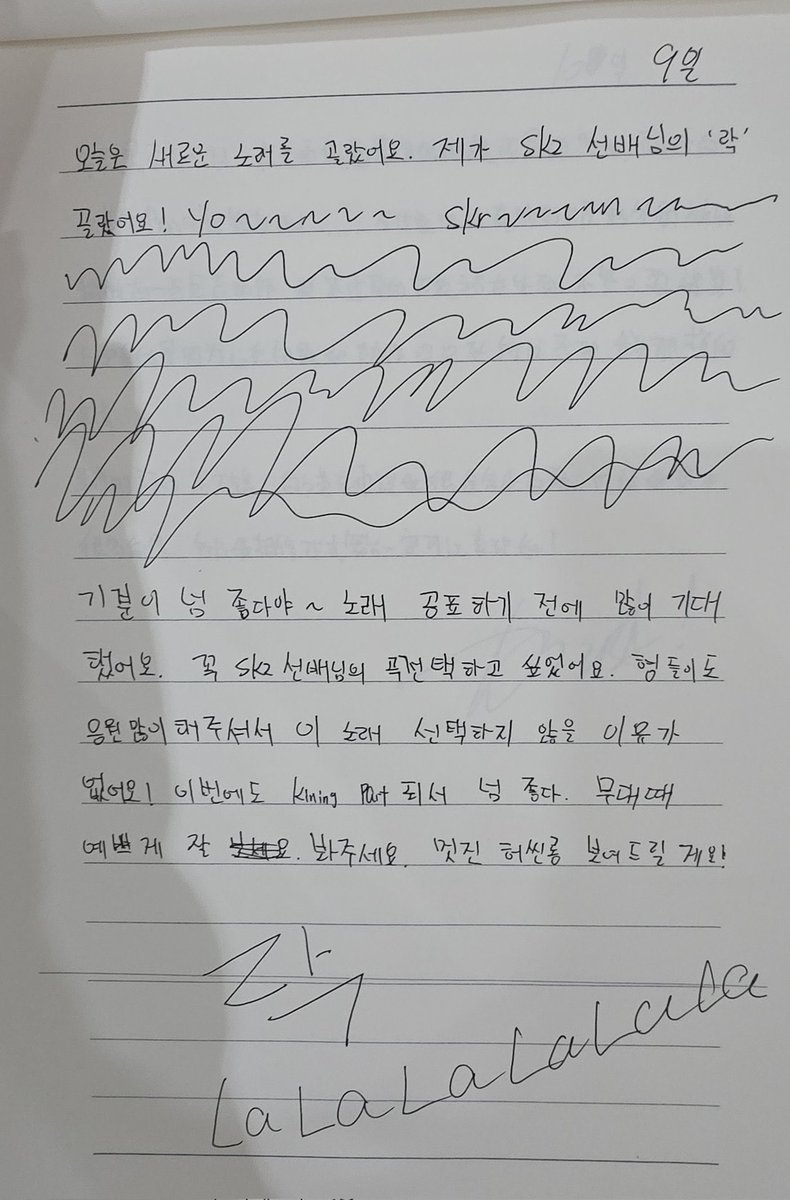 9일
오늘은 새로운 노래를 골랐어요. 제가 SKZ 선배님의 '락'
골랐어요! yo~~~~~ Skr~~~~
기분이 넘 좋다야~ 노래 공표하기 전에 많이 기대
했어요. 꼭 SKZ 선배님의 곡선택하고 싶었어요. 형들이도
응원많이 해주셔서 이 노래 선택하지 않을 이유가
없어요! 이번에도 killing Part 되서 넘 좋다. 무대때
예쁘게 잘 봐주세요. 멋진 허씬롱 보여드릴 게요!
락
LaLaLaLaLaLa